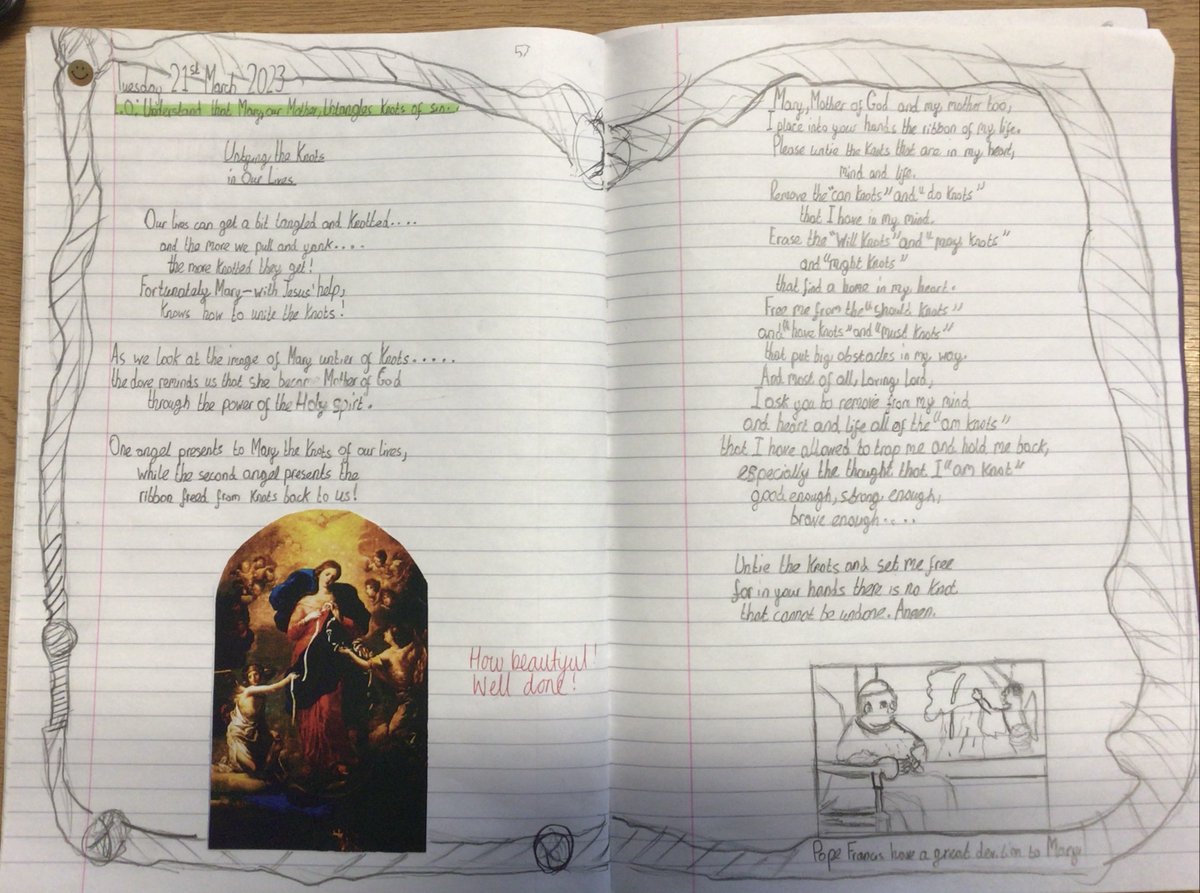 57
Tuesday 21st March 2023
L.O: Understand that Mary, our Mother, Untangles Knots of sin.
Untying the Knots
in Our Lives
Our lives can get a bit tangled and Knotted....
and the more we pull and yank....
the more Knotted they get!
Fortunately Mary-with Jesus' help,
Knows how to unite the Knots!
As we look at the image of Mary untier of Knots.....
the dove reminds us that she became Mother of God
through the power of the Holy spirt.
One angel presents to Mary the Knots of our lives,
while the second angel presents the
ribbon freed from Knots back to us!
How beautiful!
Well done!
Mary, Mother of God and my mother too,
I place into your hands the ribbon of my life.
Please untie the Knots that are in my heart,
mind and life.
Remove the "can Knots" and "do Knots"
that I have in my mind.
Erase the "Will Knots" and "may Knots"
and "might Knots"
that find a home in my heart.
Free me from the "should Knots"
and "have Knots" and "must Knots"
that put big obstacles in my way.
And most of all, Loving Lord,
I ask you to remove from my mind
and heart and life all of the "am Knots"
that I have allowed to trap me and hold me back,
especially the thought that I "am Knot"
good enough, strong enough,
brave enough....
Untie the Knots and set me free
for in your hands there is no Knot
that cannot be undone. Amen.
Pope Francis have a great devtion to Mary